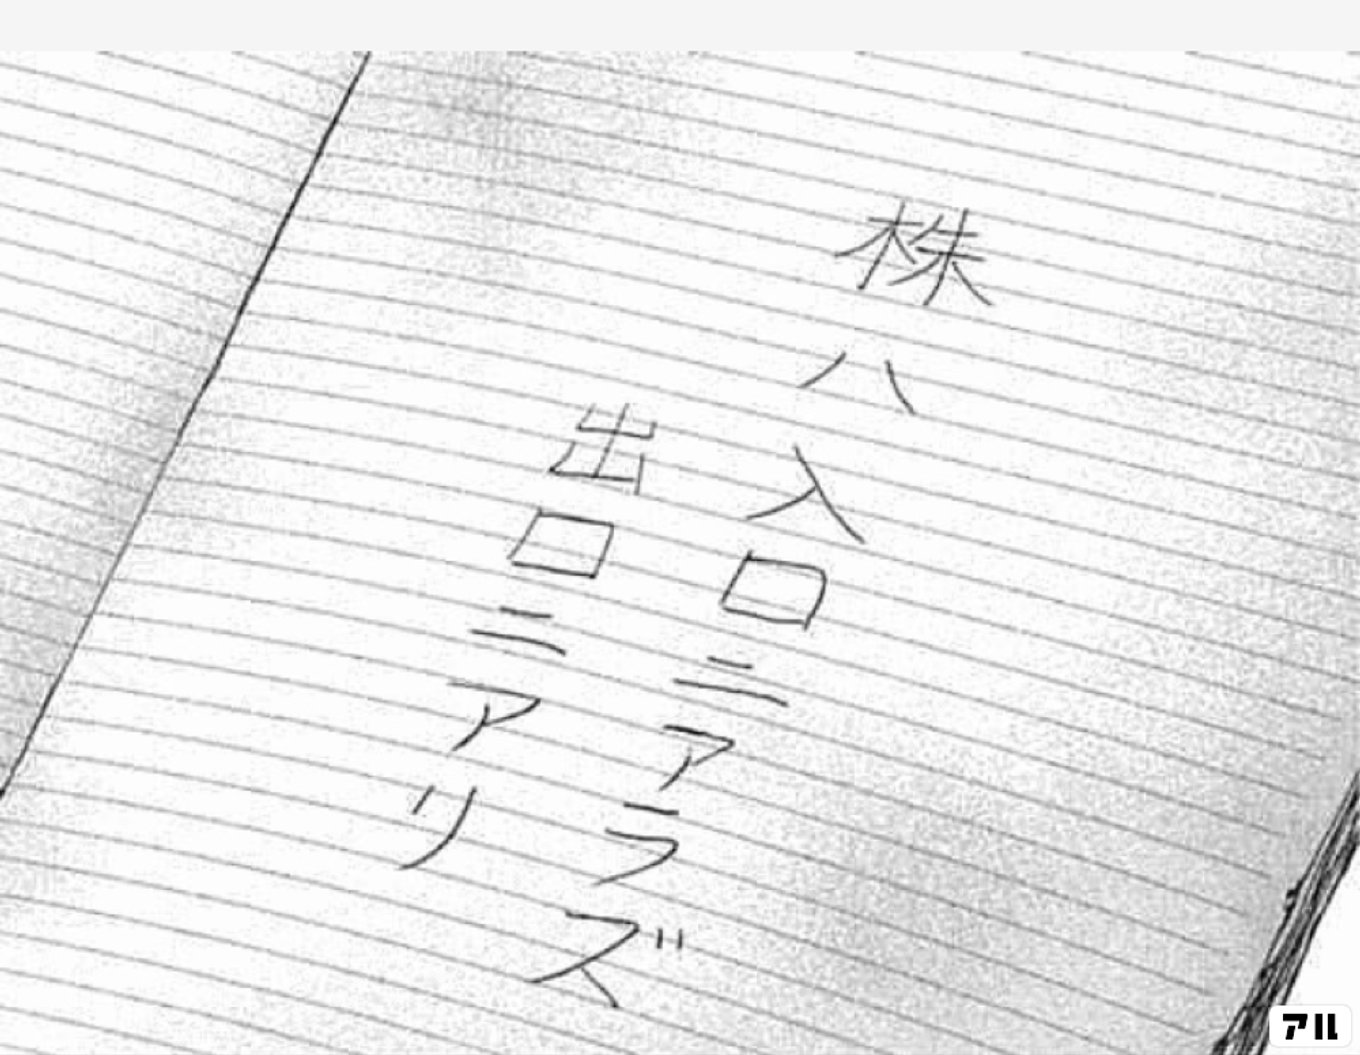 株ハ
入口ニアラズ
出口ニアリ
アル